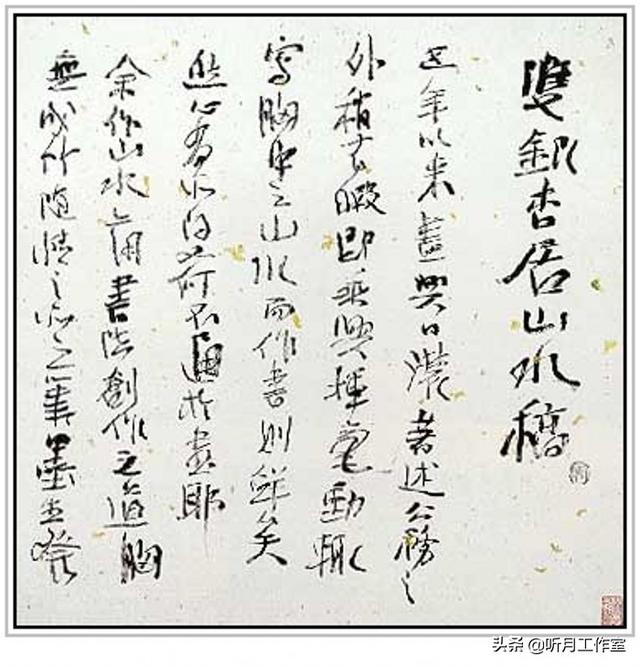 雙銀杏居山水稿
近年以來畫興日濃著述公務之
外稍有暇即乘興揮毫動輒
寫胸中之山水而作書則鮮矣
然心有所得荷不通於畫耶
余作山水亦用書法創作之道胸
無成竹隨情之所之筆墨生發
头条@听月工作室